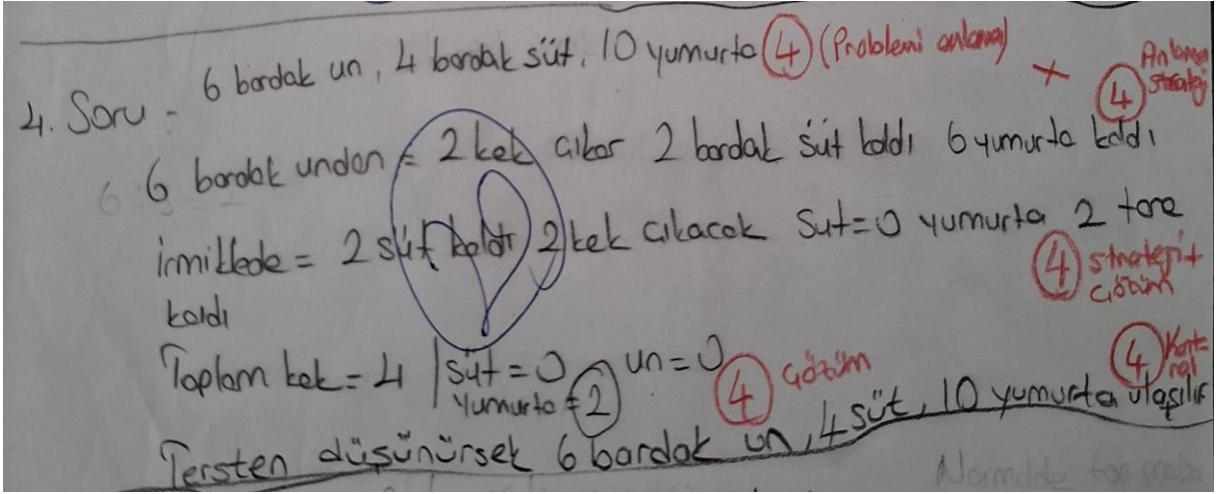 6 bardak un, 4 bardak süt, 10 yumurta 4 (Problemi anlama) x
4 Anlama strateji
4. Soru -
6 bardak undan = 2 kek çıkar 2 bardak süt kaldı 6 yumurta kaldı
irmiklede = 2 süt kaldı 2 kek çıkacak Süt=0 yumurta 2 tane
kaldı
4 strateji+
çözüm
Toplam kek = 4 | süt = 0 un = 0
Yumurta = 2
4 çözüm
4
Tersten düşünürsek 6 bardak un, 4 süt, 10 yumurta ulaşılır